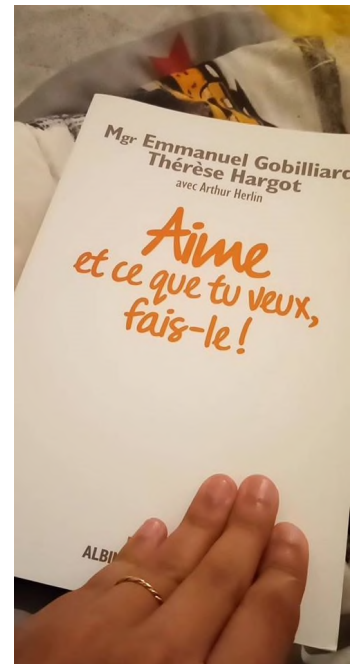 Mgr Emmanuel Gobilliard
Thérèse Hargot
avec Arthur Herlin
Aime
et ce que tu veux,
fais-le !